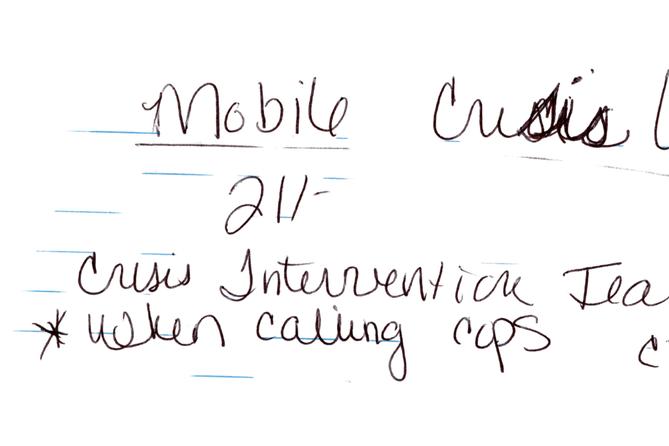 Mobile Crisis
211-
Crisis Intervention Tea
* when calling cops c